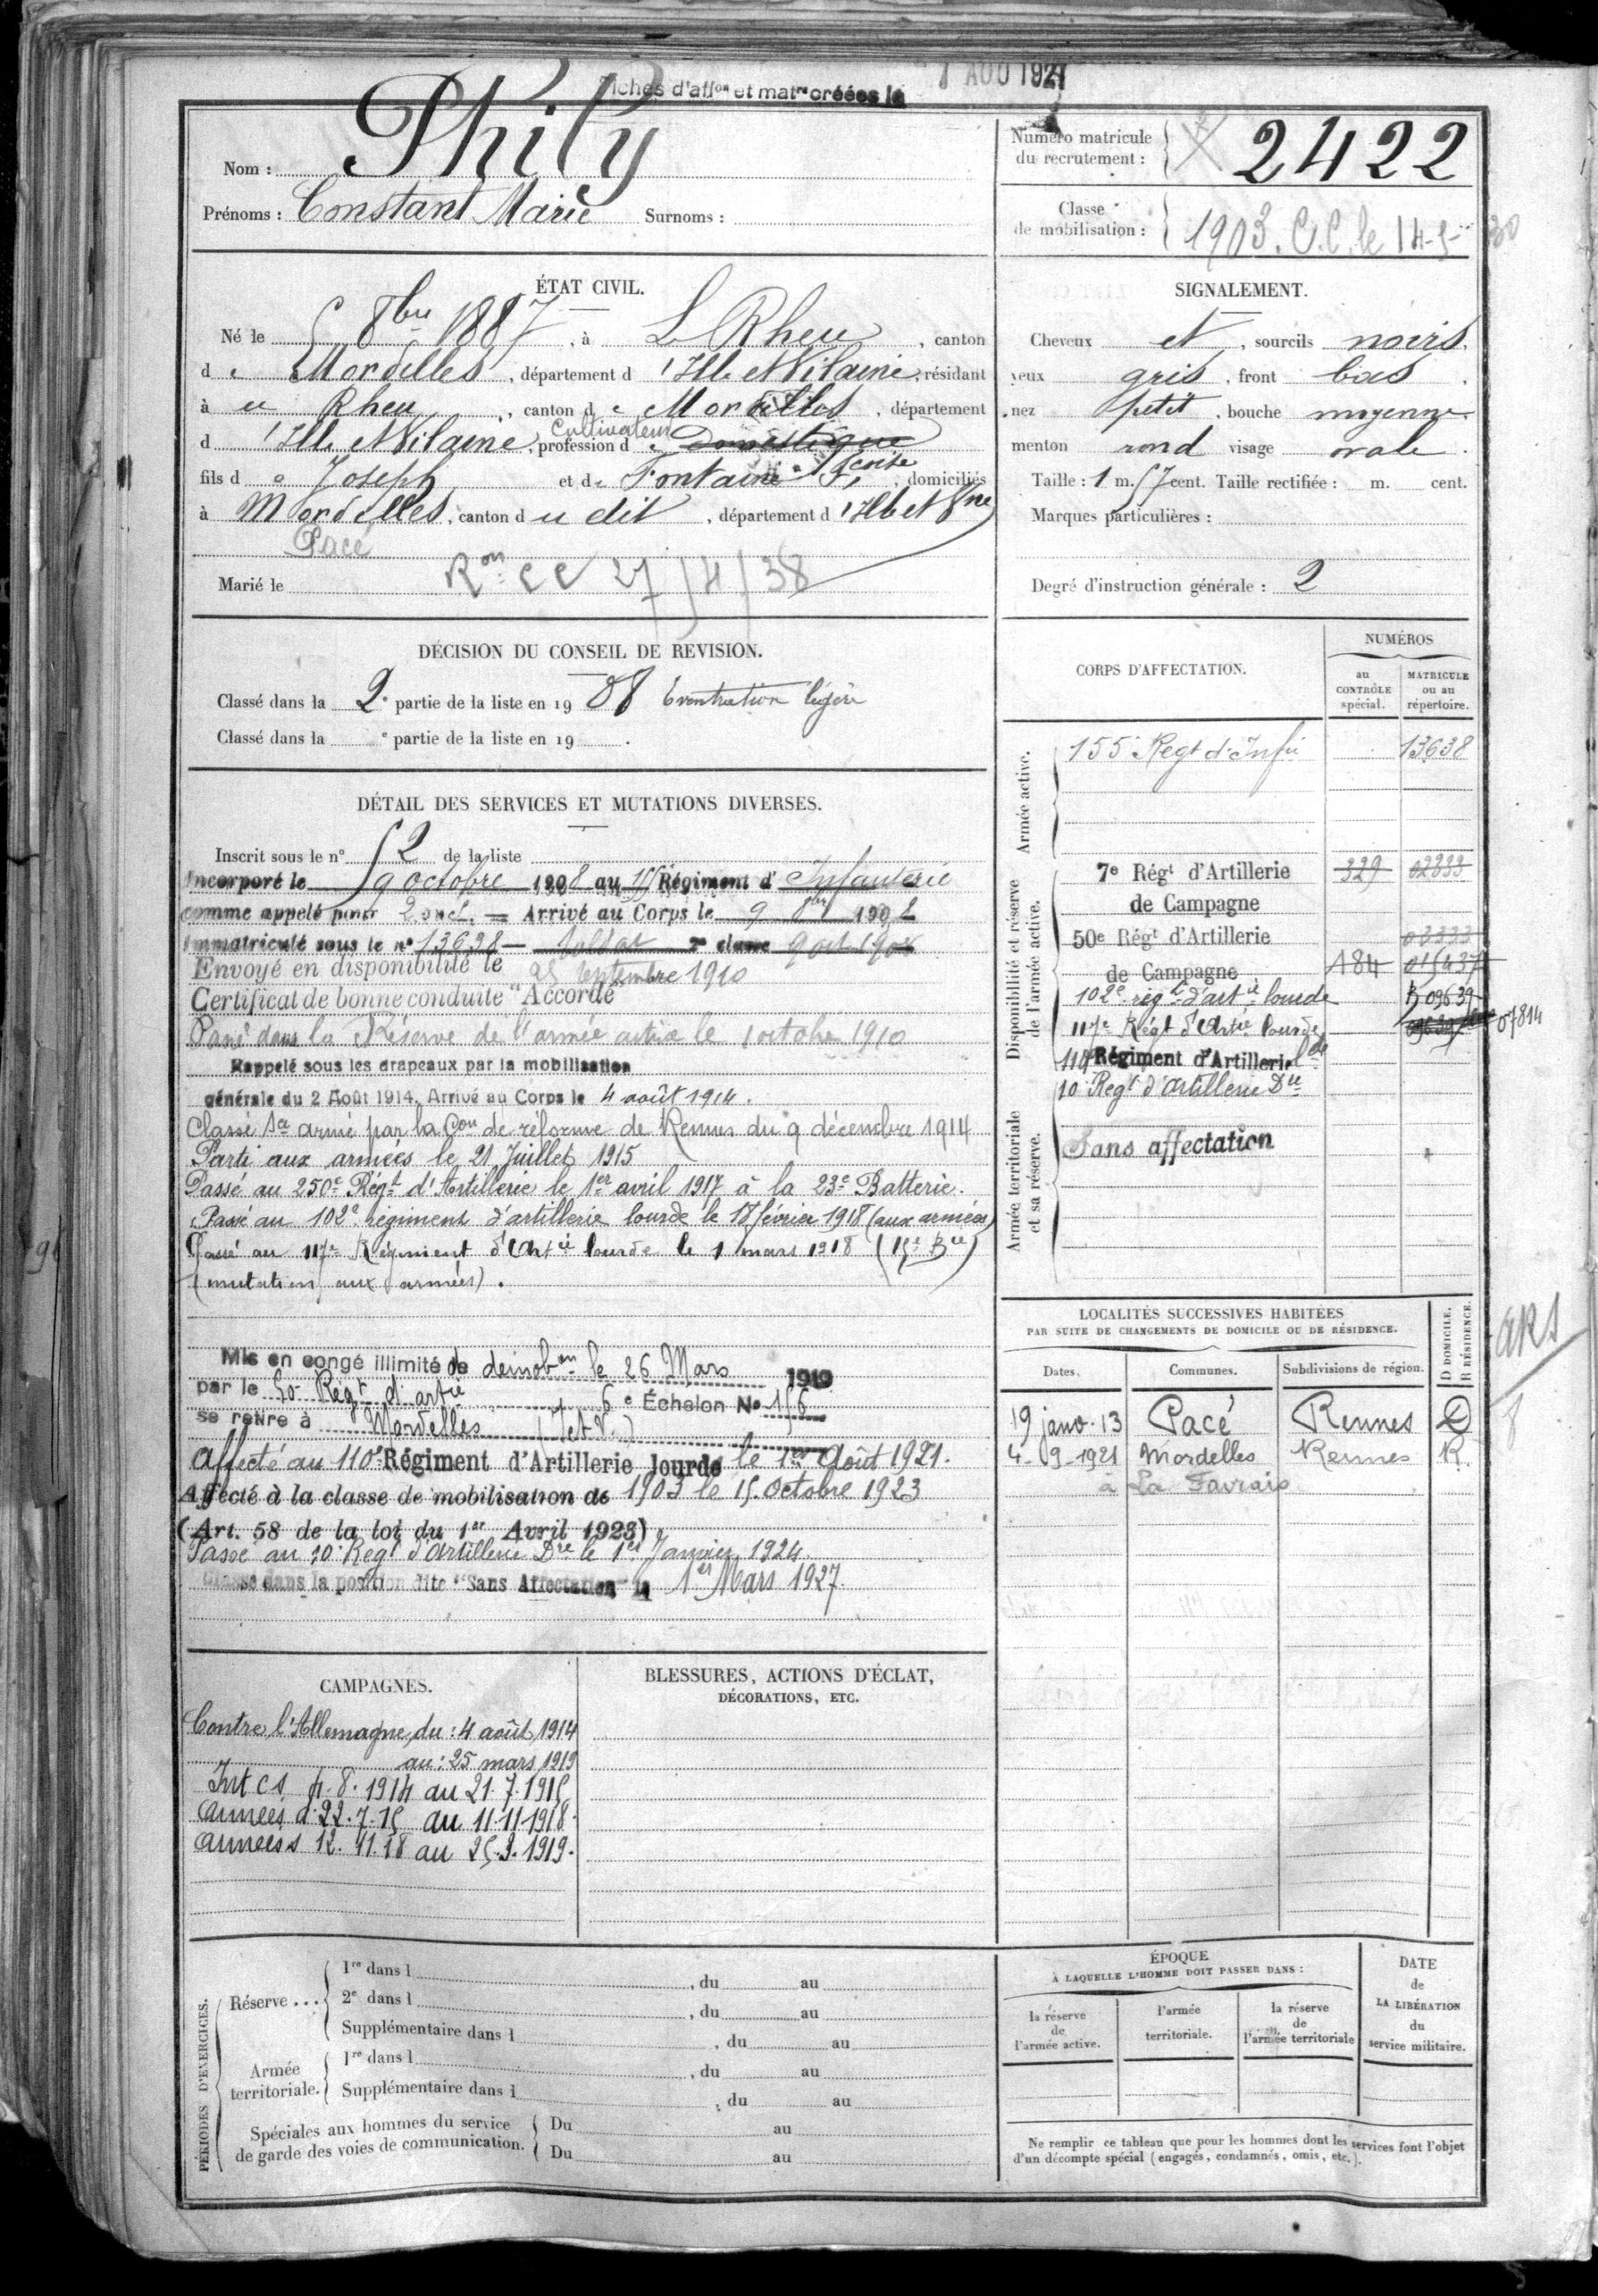 fiches d'aff<sup>on</sup> et mat<sup>re</sup> créées le 1 AOU 1927
Nom : Phily
Prénoms : Constant Marie Surnoms :
Numéro matricule
du recrutement : 2422
Classe
de mobilisation : 1903. C.C. le 14-5-30
ÉTAT CIVIL.
Né le 5 8bre 1887, à Le Rheu, canton
de Mordelles, département d'Ille et Vilaine, résidant
à u Rheu, canton de Mordelles, département
Cultivateur
d'Ille et Vilaine, profession de domestique
fils de Joseph et de Fontaine, domiciliés
à Mordelles, canton du dit, département d'Ille et Vne
Pacé
Marié le
Ron CC 27/4/38
SIGNALEMENT.
Cheveux et, sourcils noirs.
yeux gris, front bas.
nez petit, bouche moyenne
menton rond visage ovale.
Taille : 1 m. 57 cent. Taille rectifiée : m. cent.
Marques particulières :
Degré d'instruction générale : 2
DÉCISION DU CONSEIL DE REVISION.
Classé dans la 2e partie de la liste en 1908 Eventration légère
Classé dans la e partie de la liste en 19 .
DÉTAIL DES SERVICES ET MUTATIONS DIVERSES.
Inscrit sous le n° 52 de la liste
Incorporé le 9 octobre 1908 au 155 Régiment d'Infanterie
comme appelé pour 2 ans. = Arrivé au Corps le 9 8bre 1908
Immatriculé sous le n° 13638 - Soldat 2e classe 9 oct 1908
Envoyé en disponibilité le 25 septembre 1910
Certificat de bonne conduite "Accordé"
Passé dans la Réserve de l'armée active le 1 octobre 1910
Rappelé sous les drapeaux par la mobilisation
générale du 2 Août 1914. Arrivé au Corps le 4 août 1914.
Classé Sce armé par la Con de réforme de Rennes du 9 décembre 1914
Parti aux armées le 21 Juillet 1915
Passé au 250e Régt d'Artillerie le 1er avril 1917 à la 23e Batterie.
Passé au 102e régiment d'artillerie lourde le 18 février 1918 (aux armées)
Passé au 117e Régiment d'Artie lourde le 1 mars 1918 (15e Bie)
(mutation aux armées).
Mis en congé illimité de démobon le 26 Mars 1919
par le 50e Régt d'artie 6e Échelon No 156
se retire à Mordelles (I et V.)
Affecté au 110e Régiment d'Artillerie lourde le 1er Août 1921.
Affecté à la classe de mobilisation de 1903 le 15 Octobre 1923
(Art. 58 de la loi du 1er Avril 1923)
Passé au 10e Régt d'artillerie Dre le 1er Janvier 1924.
Classé dans la position dite "Sans Affectation" le 1er Mars 1927.
CORPS D'AFFECTATION.
NUMÉROS
au CONTRÔLE spécial.
MATRICULE ou au répertoire.
Armée active.
155e Régt d'Infie 13638
Disponibilité et réserve de l'armée active.
7e Régt d'Artillerie 329 02333
de Campagne
50e Régt d'Artillerie 02333
de Campagne 184 015437
102e régt d'artie lourde 09639
117e Régt d'Artie lourde 07814
110e Régiment d'Artillerie lde
10e Regt d'artillerie Dre
Armée territoriale et sa réserve.
Sans affectation
LOCALITÉS SUCCESSIVES HABITÉES
PAR SUITE DE CHANGEMENTS DE DOMICILE OU DE RÉSIDENCE.
Dates. Communes. Subdivisions de région. D DOMICILE. R RÉSIDENCE.
19 janv. 13 Pacé Rennes D
4-9-1921 Mordelles Rennes R.
à La Favrais
CAMPAGNES.
Contre l'Allemagne du : 4 août 1914
au : 25 mars 1919
Int CS 4.8.1914 au 21.7.1915
Armées d. 22.7.15 au 11-11-1918.
Armées s 12.11.18 au 25.3.1919.
BLESSURES, ACTIONS D'ÉCLAT,
DÉCORATIONS, ETC.
PÉRIODES D'EXERCICES.
Réserve ... 1re dans l , du au
2e dans l , du au
Supplémentaire dans l , du au
Armée territoriale. 1re dans l , du au
Supplémentaire dans l , du au
Spéciales aux hommes du service
de garde des voies de communication. Du au
Du au
ÉPOQUE
À LAQUELLE L'HOMME DOIT PASSER DANS :
la réserve de l'armée active.
l'armée territoriale.
la réserve de l'armée territoriale
DATE de LA LIBÉRATION du service militaire.
Ne remplir ce tableau que pour les hommes dont les services font l'objet
d'un décompte spécial (engagés, condamnés, omis, etc.).